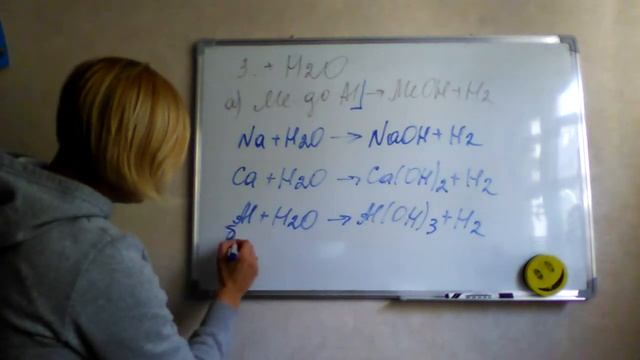 3. + H2O
а) Me до Al] → MeOH + H2
Na + H2O → NaOH + H2
Ca + H2O → Ca(OH)2 + H2
Al + H2O → Al(OH)3 + H2
б